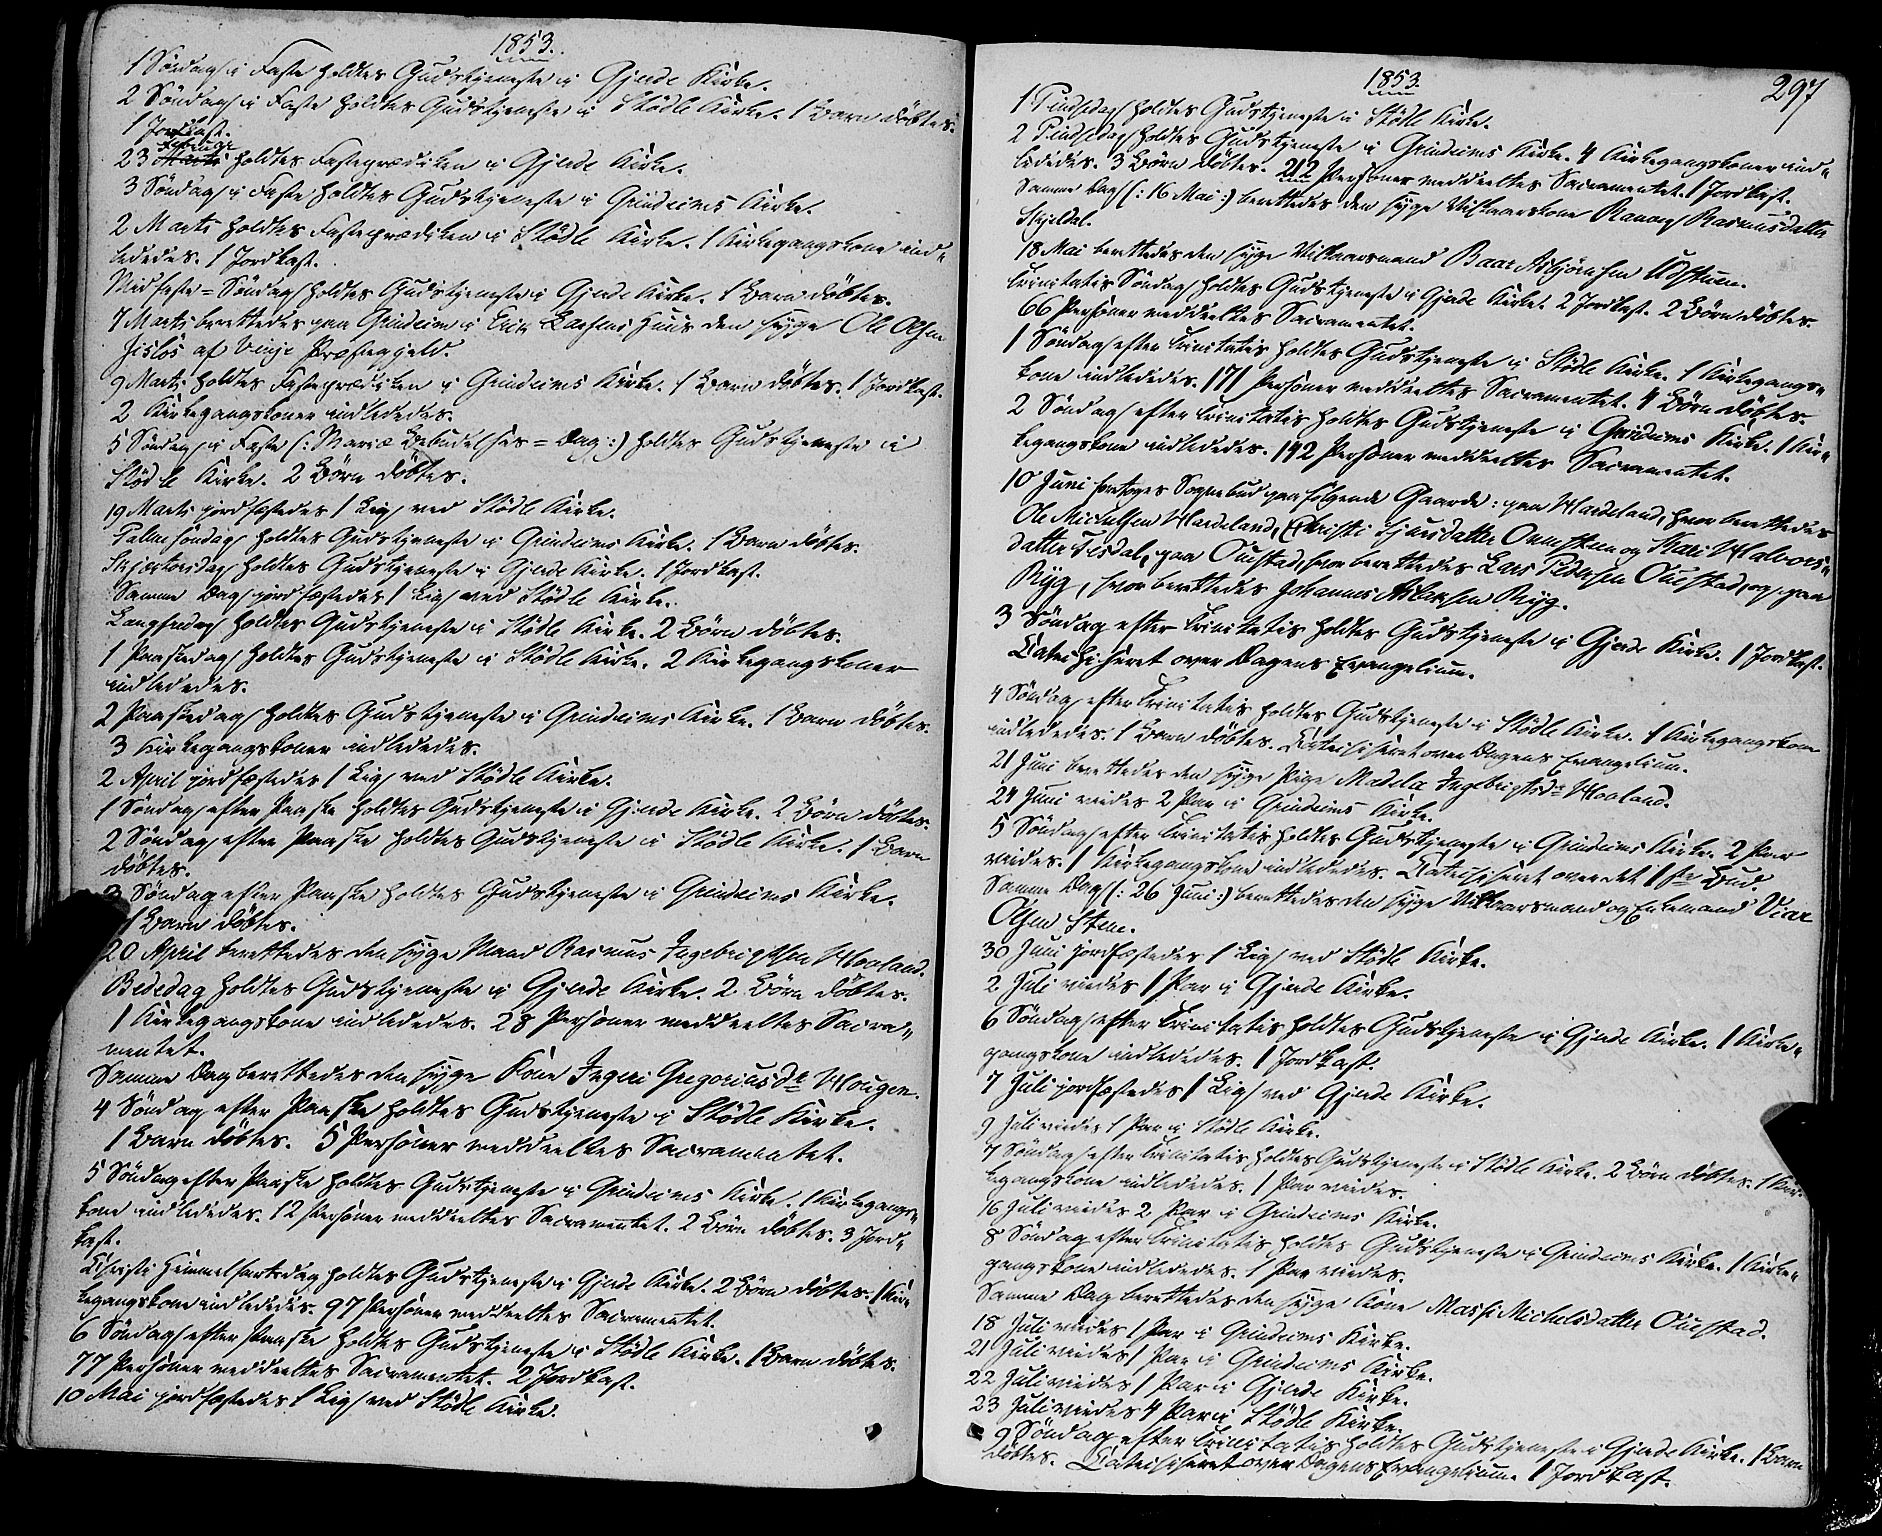 1853.
1 Søndag i Faste holdtes Gudstjeneste i Gjerde Kirke.
2 Søndag i Faste holdtes Gudstjeneste i Stödle Kirke. 1 Barn döbtes.
1 Jordkast.
Februar
23 Marts holdtes Fasteprædiken i Gjerde Kirke.
3 Söndag i Faste holdtes Gudstjeneste i Grindeims Kirke.
2 Marts holdtes Fasteprædiken i Stödle Kirke. 1 Kirkegangskone ind=
lededes. 1 Jordkast.
Midfaste=Söndag holdtes Gudstjeneste i Gjerde Kirke. 1 Barn döbtes.
7 Marts berettedes paa Grindeim i Erik Larsens Huus den syge Ole Olsen
af Vinje Præstegjeld.
9 Marts holdtes Fasteprædiken i Grindeims Kirke. 1 Barn döbtes. 1 Jordkast.
2 Kirkegangskoner indlededes.
5 Söndag i Faste (: Mariæ Bebudelses=Dag :) holdtes Gudstjeneste i
Stödle Kirke. 2 Börn döbtes.
19 Marts jordfæstedes 1 Lig ved Stödle Kirke.
Palmesöndag holdtes Gudstjeneste i Grindeims Kirke. 1 Barn döbtes.
Skjertorsdag holdtes Gudstjeneste i Gjerde Kirke. 1 Jordkast.
Samme Dag jordfæstedes 1 Lig ved Stödle Kirke.
Langfredag holdtes Gudstjeneste i Stödle Kirke. 2 Börn döbtes.
1 Paaskedag holdtes Gudstjeneste i Stödle Kirke. 2 Kirkegangskoner
indlededes.
2 Paaskedag holdtes Gudstjeneste i Grindeims Kirke. 1 Barn döbtes.
3 Kirkegangskoner indlededes.
2 April jordfæstedes 1 Lig ved Stödle Kirke.
1 Söndag efter Paaske holdtes Gudstjeneste i Gjerde Kirke. 2 Börn döbtes.
2 Söndag efter Paaske holdtes Gudstjeneste i Stödle Kirke. 1 Barn
döbtes.
3 Söndag efter Paaske holdtes Gudstjeneste i Grindeims Kirke.
1 Barn döbtes.
20 April berettedes den syge Mand Rasmus Ingebrigtsen Haaland.
Bededag holdtes Gudstjeneste i Gjerde Kirke. 2 Börn döbtes.
1 Kirkegangskone indlededes. 28 Personer meddeeltes Sacra=
mentet.
Samme Dag berettedes den syge Kone Ingeri Gregoriusdr Hougen.
4 Söndag efter Paaske holdtes Gudstjeneste i Stödle Kirke.
1 Barn döbtes. 5 Personer meddeeltes Sacramentet.
5 Söndag efter Paaske holdtes Gudstjeneste i Grindeims Kirke. 1 Kirkegangs=
kone indlededes. 12 Personer meddeeltes Sacramentet. 2 Börn döbtes. 3 Jord=
kast.
Christi Himmelfartsdag holdtes Gudstjeneste i Gjerde Kirke. 2 Börn döbtes. 1 Kir=
kegangskone indlededes. 97 Personer meddeeltes Sacramentet.
6 Söndag efter Paaske holdtes Gudstjeneste i Stödle Kirke. 1 Barn döbtes.
77 Personer meddeeltes Sacramentet. 2 Jordkast.
10 Mai jordfæstedes 1 Lig ved Stödle Kirke.
1853.
297
1 Pindsedag holdtes Gudstjeneste i Stödle Kirke.
2 Pindsedag holdtes Gudstjeneste i Grindeims Kirke. 4 Kirkegangskoner ind=
lededes. 3 Börn döbtes. 212 Personer meddeeltes Sacramentet. 1 Jordkast.
Samme Dag (: 16 Mai :) berettedes den syge Vilkaarskone Rannog Rasmusdatter
Skjeldal.
18 Mai berettedes den syge Vilkaarsmand Baar Asbjörnsen Udstuen.
Trinitatis Söndag holdtes Gudstjeneste i Gjerde Kirke. 2 Jordkast. 2 Börn döbtes.
66 Personer meddeeltes Sacramentet.
1 Söndag efter Trinitatis holdtes Gudstjeneste i Stödle Kirke. 1 Kirkegangs=
kone indlededes. 171 Personer meddeeltes Sacramentet. 4 Börn döbtes.
2 Söndag efter Trinitatis holdtes Gudstjeneste i Grindeims Kirke. 1 Kir=
kegangskone indlededes. 192 Personer meddeeltes Sacramentet.
10 Juni foretoges Sognebud paa fölgende Gaarde: paa Hardeland, hvor berettedes
Ole Michelsen Hardeland, Christi Sjursdatter og Kari Halvors=
datter paa Ouestad, hvor berettedes Lars Pedersen Ouestad, og paa
Ryg, hvor berettedes Johannes Aslaksen Ryg.
3 Söndag efter Trinitatis holdtes Gudstjeneste i Gjerde Kirke. 1 Jordkast.
Catechiseret over Dagens Evangelium.
4 Söndag efter Trinitatis holdtes Gudstjeneste i Stödle Kirke. 1 Kirkegangskone
indlededes. 1 Barn döbtes. Catechiseret over Dagens Evangelium.
21 Juni berettedes den syge Pige Madela Ingebrigtsdr Haaland.
24 Juni viedes 2 Par i Grindeims Kirke.
5 Söndag efter Trinitatis holdtes Gudstjeneste i Grindeims Kirke. 2 Par
viedes. 1 Kirkegangskone indlededes. Catechiseret over det 1ste Bud.
Samme Dag (: 26 Juni :) berettedes den syge Vilkaarsmand og Enkemand Viar
Olsen Steene.
30 Juni jordfæstedes 1 Lig ved Stödle Kirke.
2 Juli viedes 1 Par i Gjerde Kirke.
6 Söndag efter Trinitatis holdtes Gudstjeneste i Gjerde Kirke. 1 Kirke=
gangskone indlededes. 1 Jordkast.
7 Juli jordfæstedes 1 Lig ved Gjerde Kirke.
9 Juli viedes 1 Par i Stödle Kirke.
7 Söndag efter Trinitatis holdtes Gudstjeneste i Stödle Kirke. 2 Börn döbtes. 1 Kir=
kegangskone indlededes. 1 Par viedes.
16 Juli viedes 2 Par i Grindeims Kirke.
8 Söndag efter Trinitatis holdtes Gudstjeneste i Grindeims Kirke. 1 Kirke=
gangskone indlededes. 1 Par viedes.
Samme Dag berettedes den syge Kone Massi Michelsdatter Ouestad.
18 Juli viedes 1 Par i Grindeims Kirke.
21 Juli viedes 1 Par i Grindeims Kirke.
22 Juli viedes 1 Par i Gjerde Kirke.
23 Juli viedes 4 Par i Stödle Kirke.
9 Söndag efter Trinitatis holdtes Gudstjeneste i Gjerde Kirke. 1 Barn
döbtes. Catechiseret over Dagens Evangelium. 1 Jordkast.